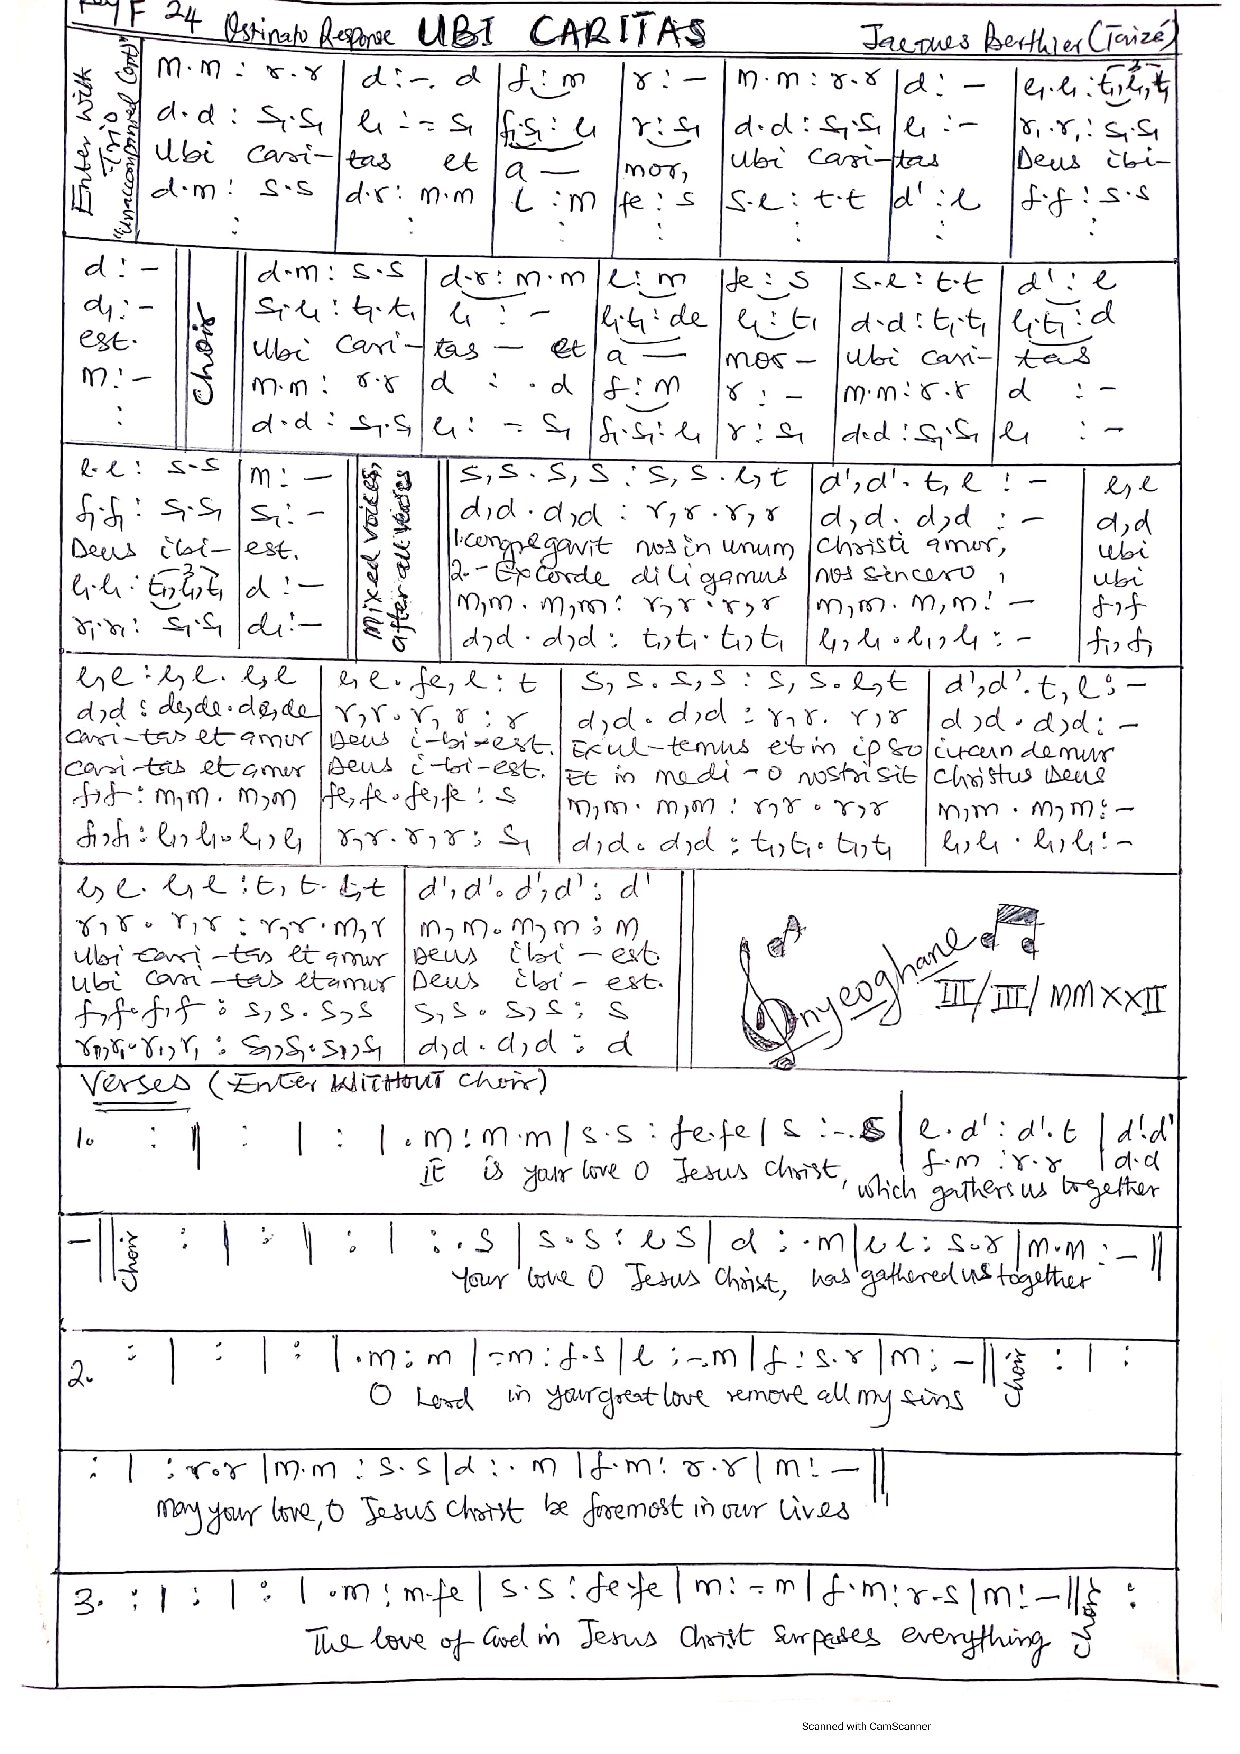 Key F 24 Ostinato Response UBI CARITAS Jacques Berthier (Taizé)
Enter With
Trio
"Unaccompanied (opt)"
m.m : r.r | d :-. d | f : m | r : - | m.m : r.r | d : - | l₁.l₁ : t₁,l₁,t₁
d.d : s₁.s₁ | l₁ :- s₁ | f₁.s₁ : l₁ | r : s₁ | d.d : s₁.s₁ | l₁ :- | r₁.r₁ : s₁.s₁
Ubi Cari- tas et a — mor, Ubi Cari-tas Deus ibi-
d.m : s.s | d.r : m.m | l : m | fe : s | s.l : t.t | d' : l | f.f : s.s
d : -
d₁ : -
est.
m : -
Choir
d.m : s.s | d.r : m.m | l : m | fe : s | s.l : t.t | d' : l
s₁.l₁ : t₁.t₁ | l₁ : - | l₁.t₁ : de | l₁ : t₁ | d.d : t₁.t₁ | l₁.t₁ : d
Ubi Cari- tas — et a — mor — Ubi Cari- tas
m.m : r.r | d : . d | f : m | r : - | m.m : r.r | d : -
d.d : s₁.s₁ | l₁ : - s₁ | f₁.s₁ : l₁ | r : s₁ | d.d : s₁.s₁ | l₁ : -
l.l : s.s | m : -
f₁.f₁ : s₁.s₁ | s₁ : -
Deus ibi- est.
l₁.l₁ : t₁,l₁,t₁ | d : -
r₁.r₁ : s₁.s₁ | d₁ : -
Mixed voices,
after all verses
s,s . s,s : s,s . l,t | d',d' . t,l : - | l,l
d,d . d,d : r,r . r,r | d,d . d,d : - | d,d
1.congregavit nos in unum Christi amor, Ubi
2.- Ex corde diligamus nos sincero, Ubi
m,m . m,m : r,r . r,r | m,m . m,m : - | f,f
d,d . d,d : t₁,t₁ . t₁,t₁ | l₁,l₁ . l₁,l₁ : - | f₁,f₁
l,l : l,l . l,l | l,l . fe,l : t | s,s . s,s : s,s . l,t | d',d' . t,l : -
d,d : de,de . de,de | r,r . r,r : r | d,d . d,d : r,r . r,r | d,d . d,d : -
Cari-tas et amor Deus i-bi-est. Exul-temus et in ipso iucun demur
Cari-tas et amor Deus i-bi-est. Et in medi-o nostri sit Christus Deus
f,f : m,m . m,m | fe,fe . fe,fe : s | m,m . m,m : r,r . r,r | m,m . m,m : -
f₁,f₁ : l₁,l₁ . l₁,l₁ | r,r . r,r : s₁ | d,d . d,d : t₁,t₁ . t₁,t₁ | l₁,l₁ . l₁,l₁ : -
l,l . l,l : t,t . t,t | d',d' . d',d' : d'
r,r . r,r : r,r . m,r | m,m . m,m : m
Ubi Cari-tas et amor Deus ibi-est.
Ubi Cari-tas et amor Deus ibi-est.
f,f . f,f : s,s . s,s | s,s . s,s : s
r₁,r₁ . r₁,r₁ : s₁,s₁ . s₁,s₁ | d,d . d,d : d
nyeoghane
III/III/MMXXII
Verses (Enter WITHOUT Choir)
1. : || : | : | .m : m.m | s.s : fe.fe | s :-. s | l.d' : d'.t | d'.d'
f.m : r.r | d.d
it is your love O Jesus Christ, which gathers us together
- || Choir : | : || : | : .s | s.s : l s | d : .m | l l : s.r | m.m : - ||
Your love O Jesus Christ, has gathered us together
2. : | : | : | .m : m | -m : f.s | l :-.m | f : s.r | m : - || Choir : | :
O Lord in your great love remove all my sins
: | : r.r | m.m : s.s | d : . m | f.m : r.r | m : - ||
May your love, O Jesus Christ be foremost in our lives
3. : | : | : | .m : m.fe | s.s : fe.fe | m : - m | f.m : r.s | m : - || Choir :
The love of God in Jesus Christ surpases everything
Scanned with CamScanner